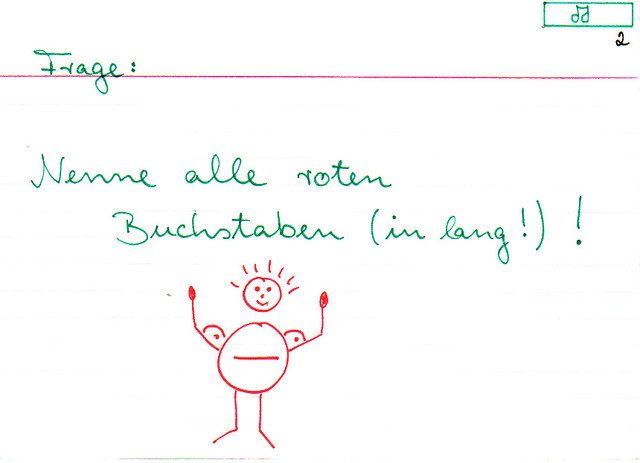 2
Frage:
Nenne alle roten
Buchstaben (in lang!)!